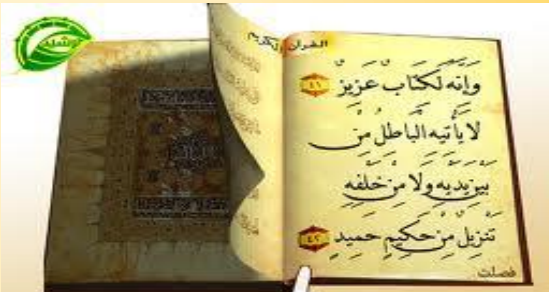 القرآن الكريم
وَإِنَّهُ لَكِتَابٌ عَزِيزٌ ٤١
لَا يَأْتِيهِ الْبَاطِلُ مِنْ
بَيْنِ يَدَيْهِ وَلَا مِنْ خَلْفِهِ
تَنْزِيلٌ مِنْ حَكِيمٍ حَمِيدٍ ٤٢
فصلت